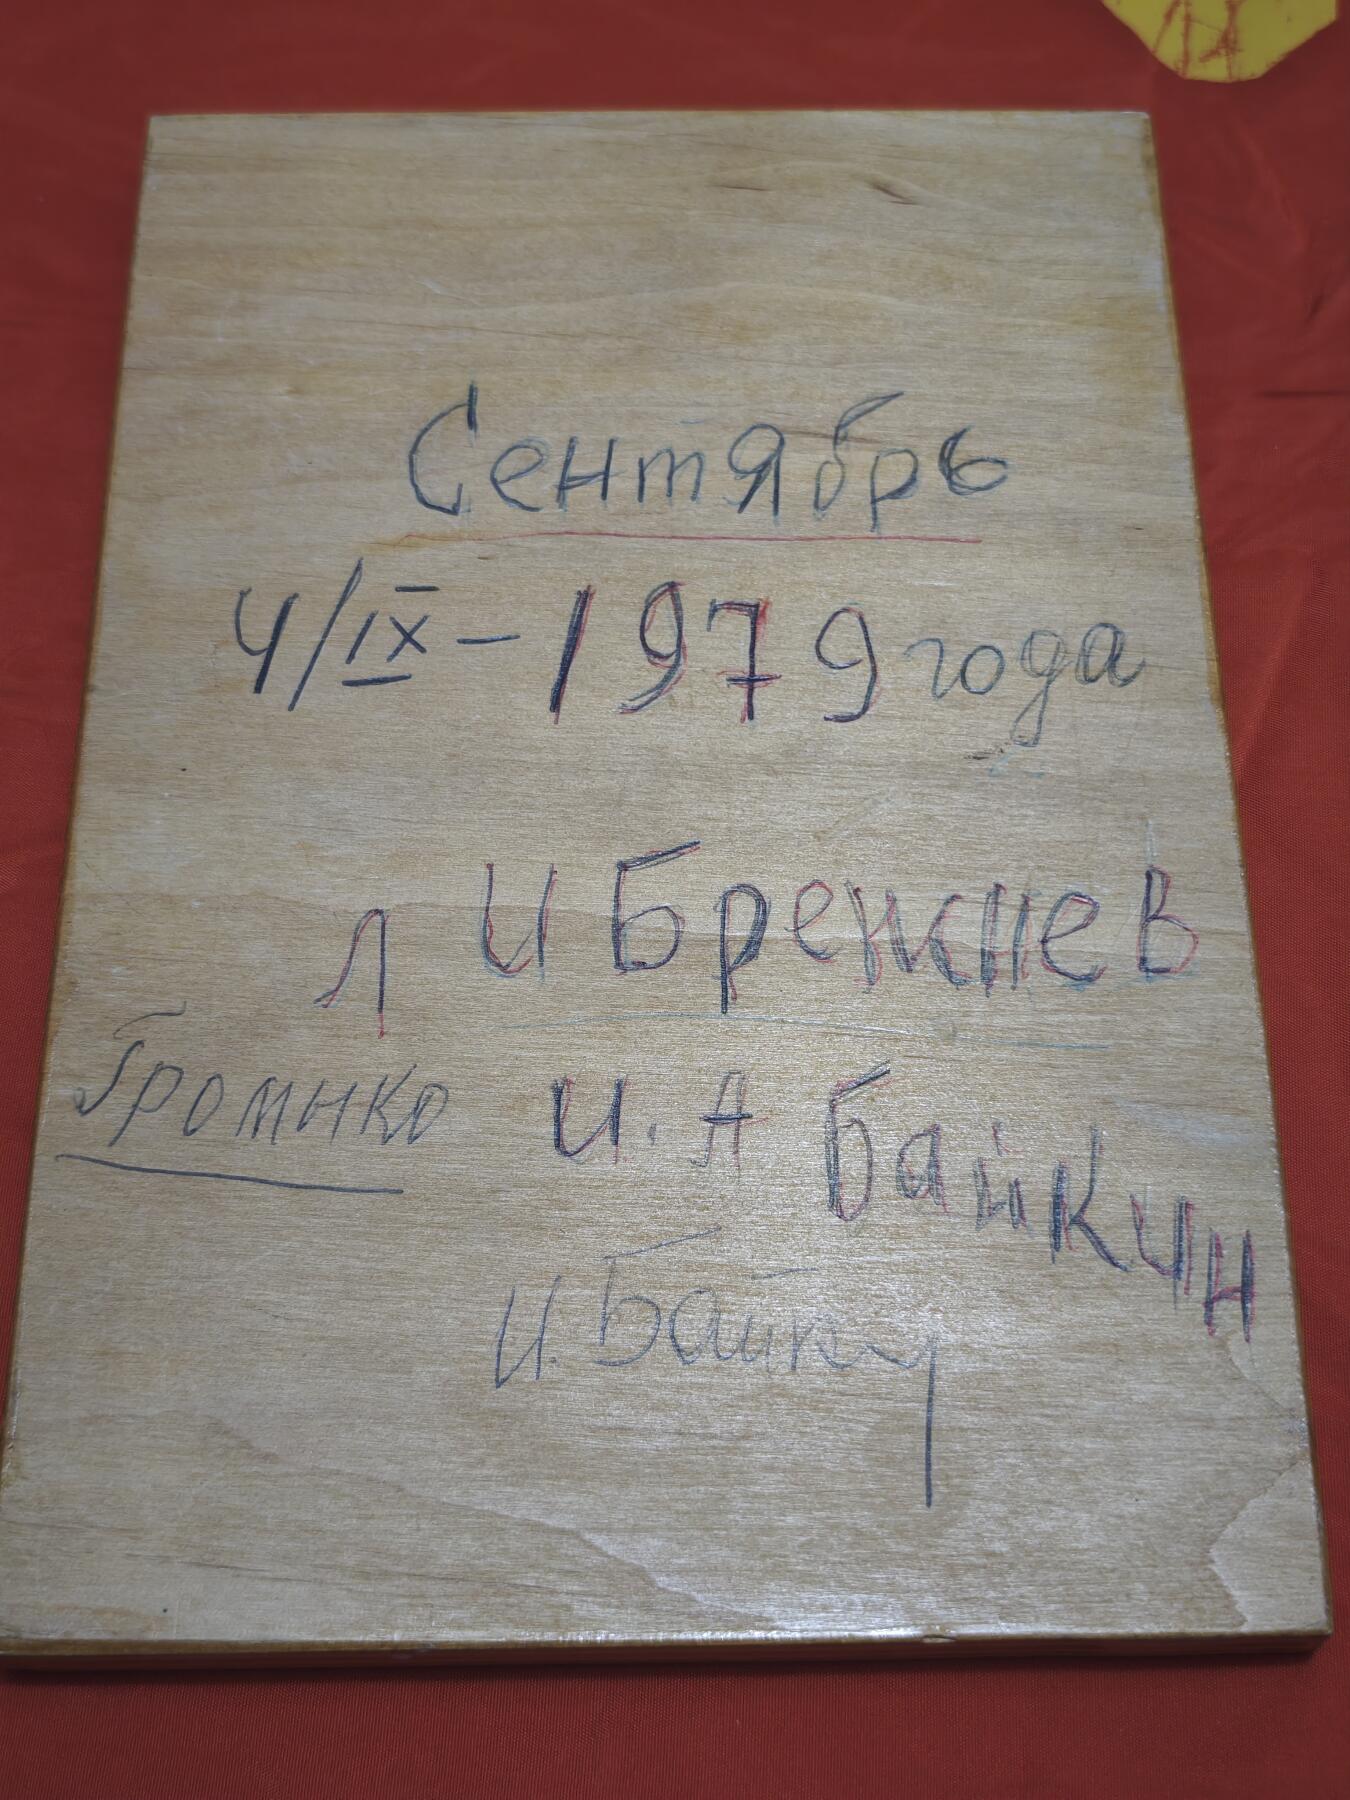 Сентябрь
4/IX – 1979 года
Л И Брежнев
Громыко И. А Байкин
И. Байку